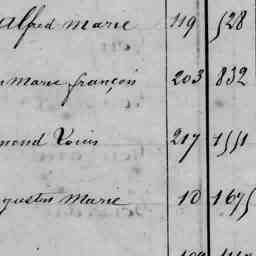 Alfred Marie 119 528
Marie françois 203 832
mond Louis 217 1551
gustin Marie 10 1675